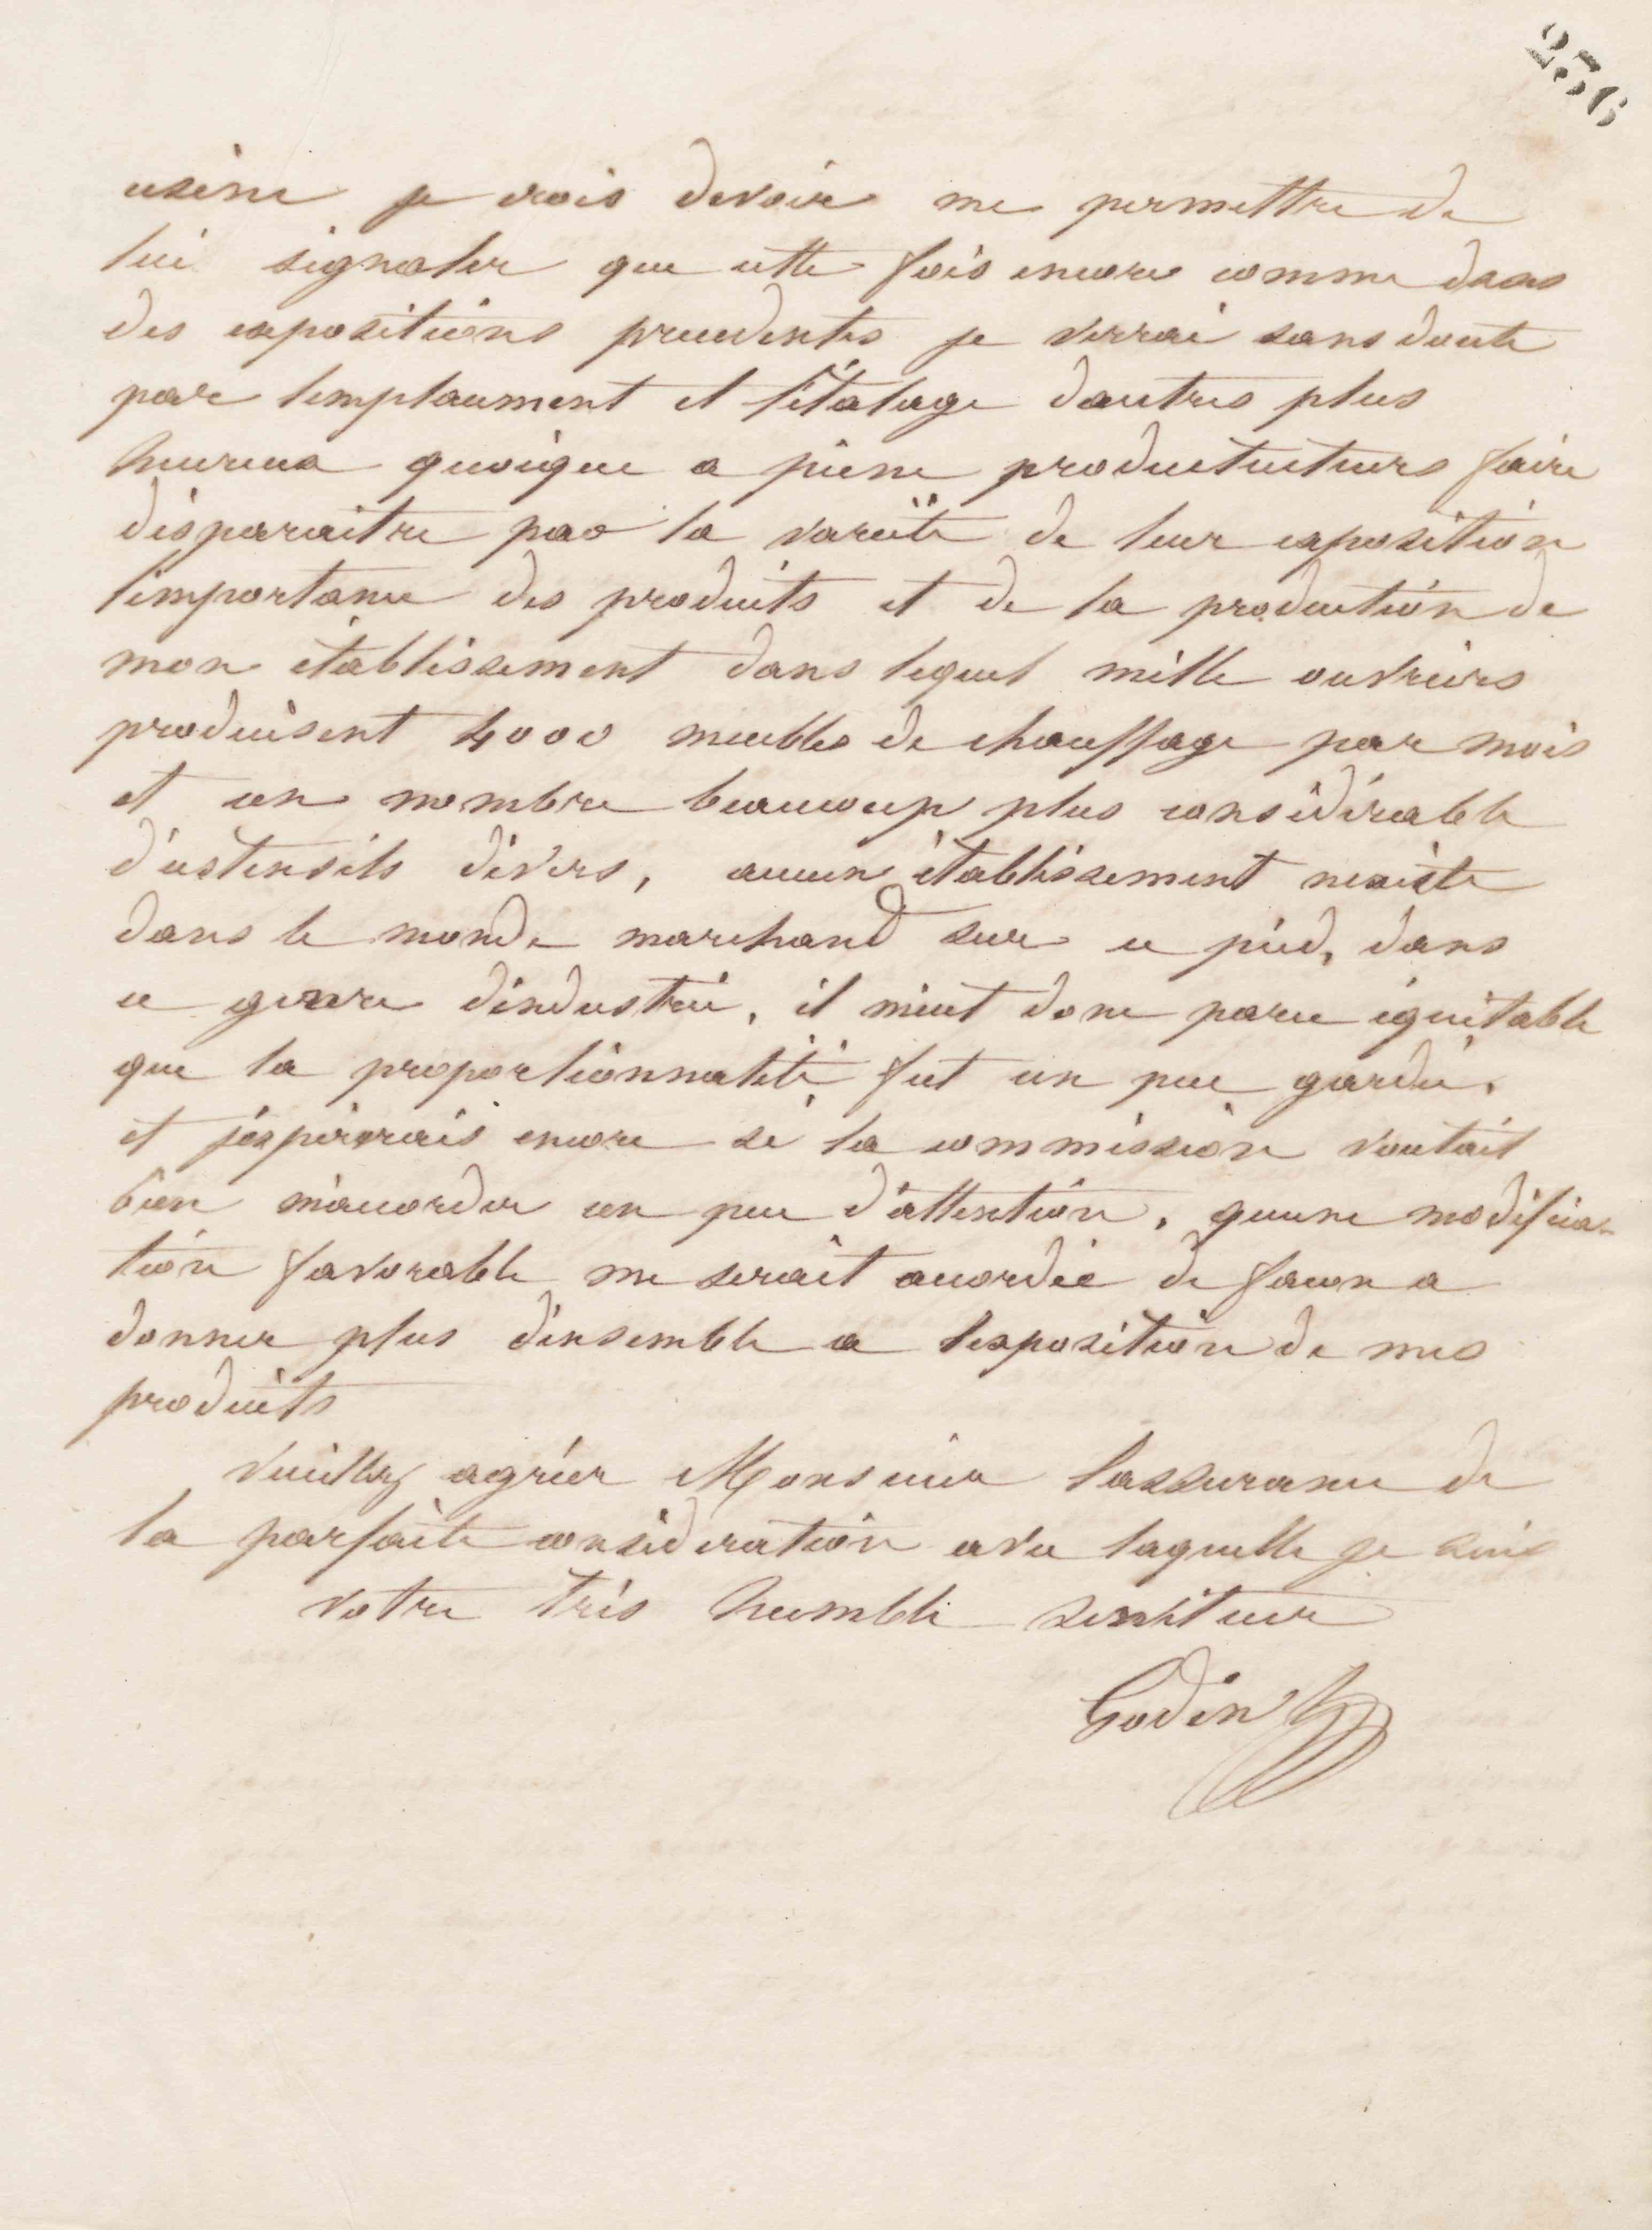 236
usine je crois devoir me permettre de
lui signaler que cette fois encore comme dans
des expositions precedentes je verrai sans doute
par lemplacement et létalage dautres plus
heureux quoique a piene productuteurs faire
disparaitre par la varieté de leur exposition
limportance des produits et de la production de
mon établissement dans lequel mille ouvriers
produisent 4000 meubles de chauffage par mois
et un nombre beaucoup plus considérable
d'ustensils divers, aucun établissement nexiste
dans le monde marchand sur ce pied, dans
ce genre dindustrie, il meut donc paru équitable
que la proportionnalité fut un peu gardée,
et jéspèrerais encore si la commission voulait
bien m'accorder un peu d'attention, quune modifica-
tion favorable me serait accordée de facon a
donner plus densemble a lexposition de mes
produits
Veuillez agréer Monsieur lassurance de
la parfaite consideration avec laquelle je suis
votre très humble serviteur
Godin